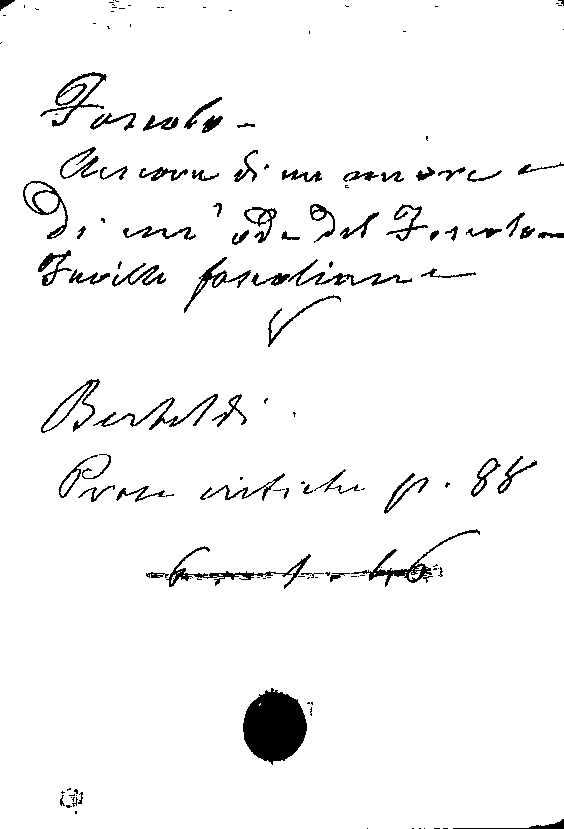 Foscolo -
Ancora di un amore e
di un' ode del Foscolo -
Faville foscoliane -
Bertoldi
Prose critiche p. 88